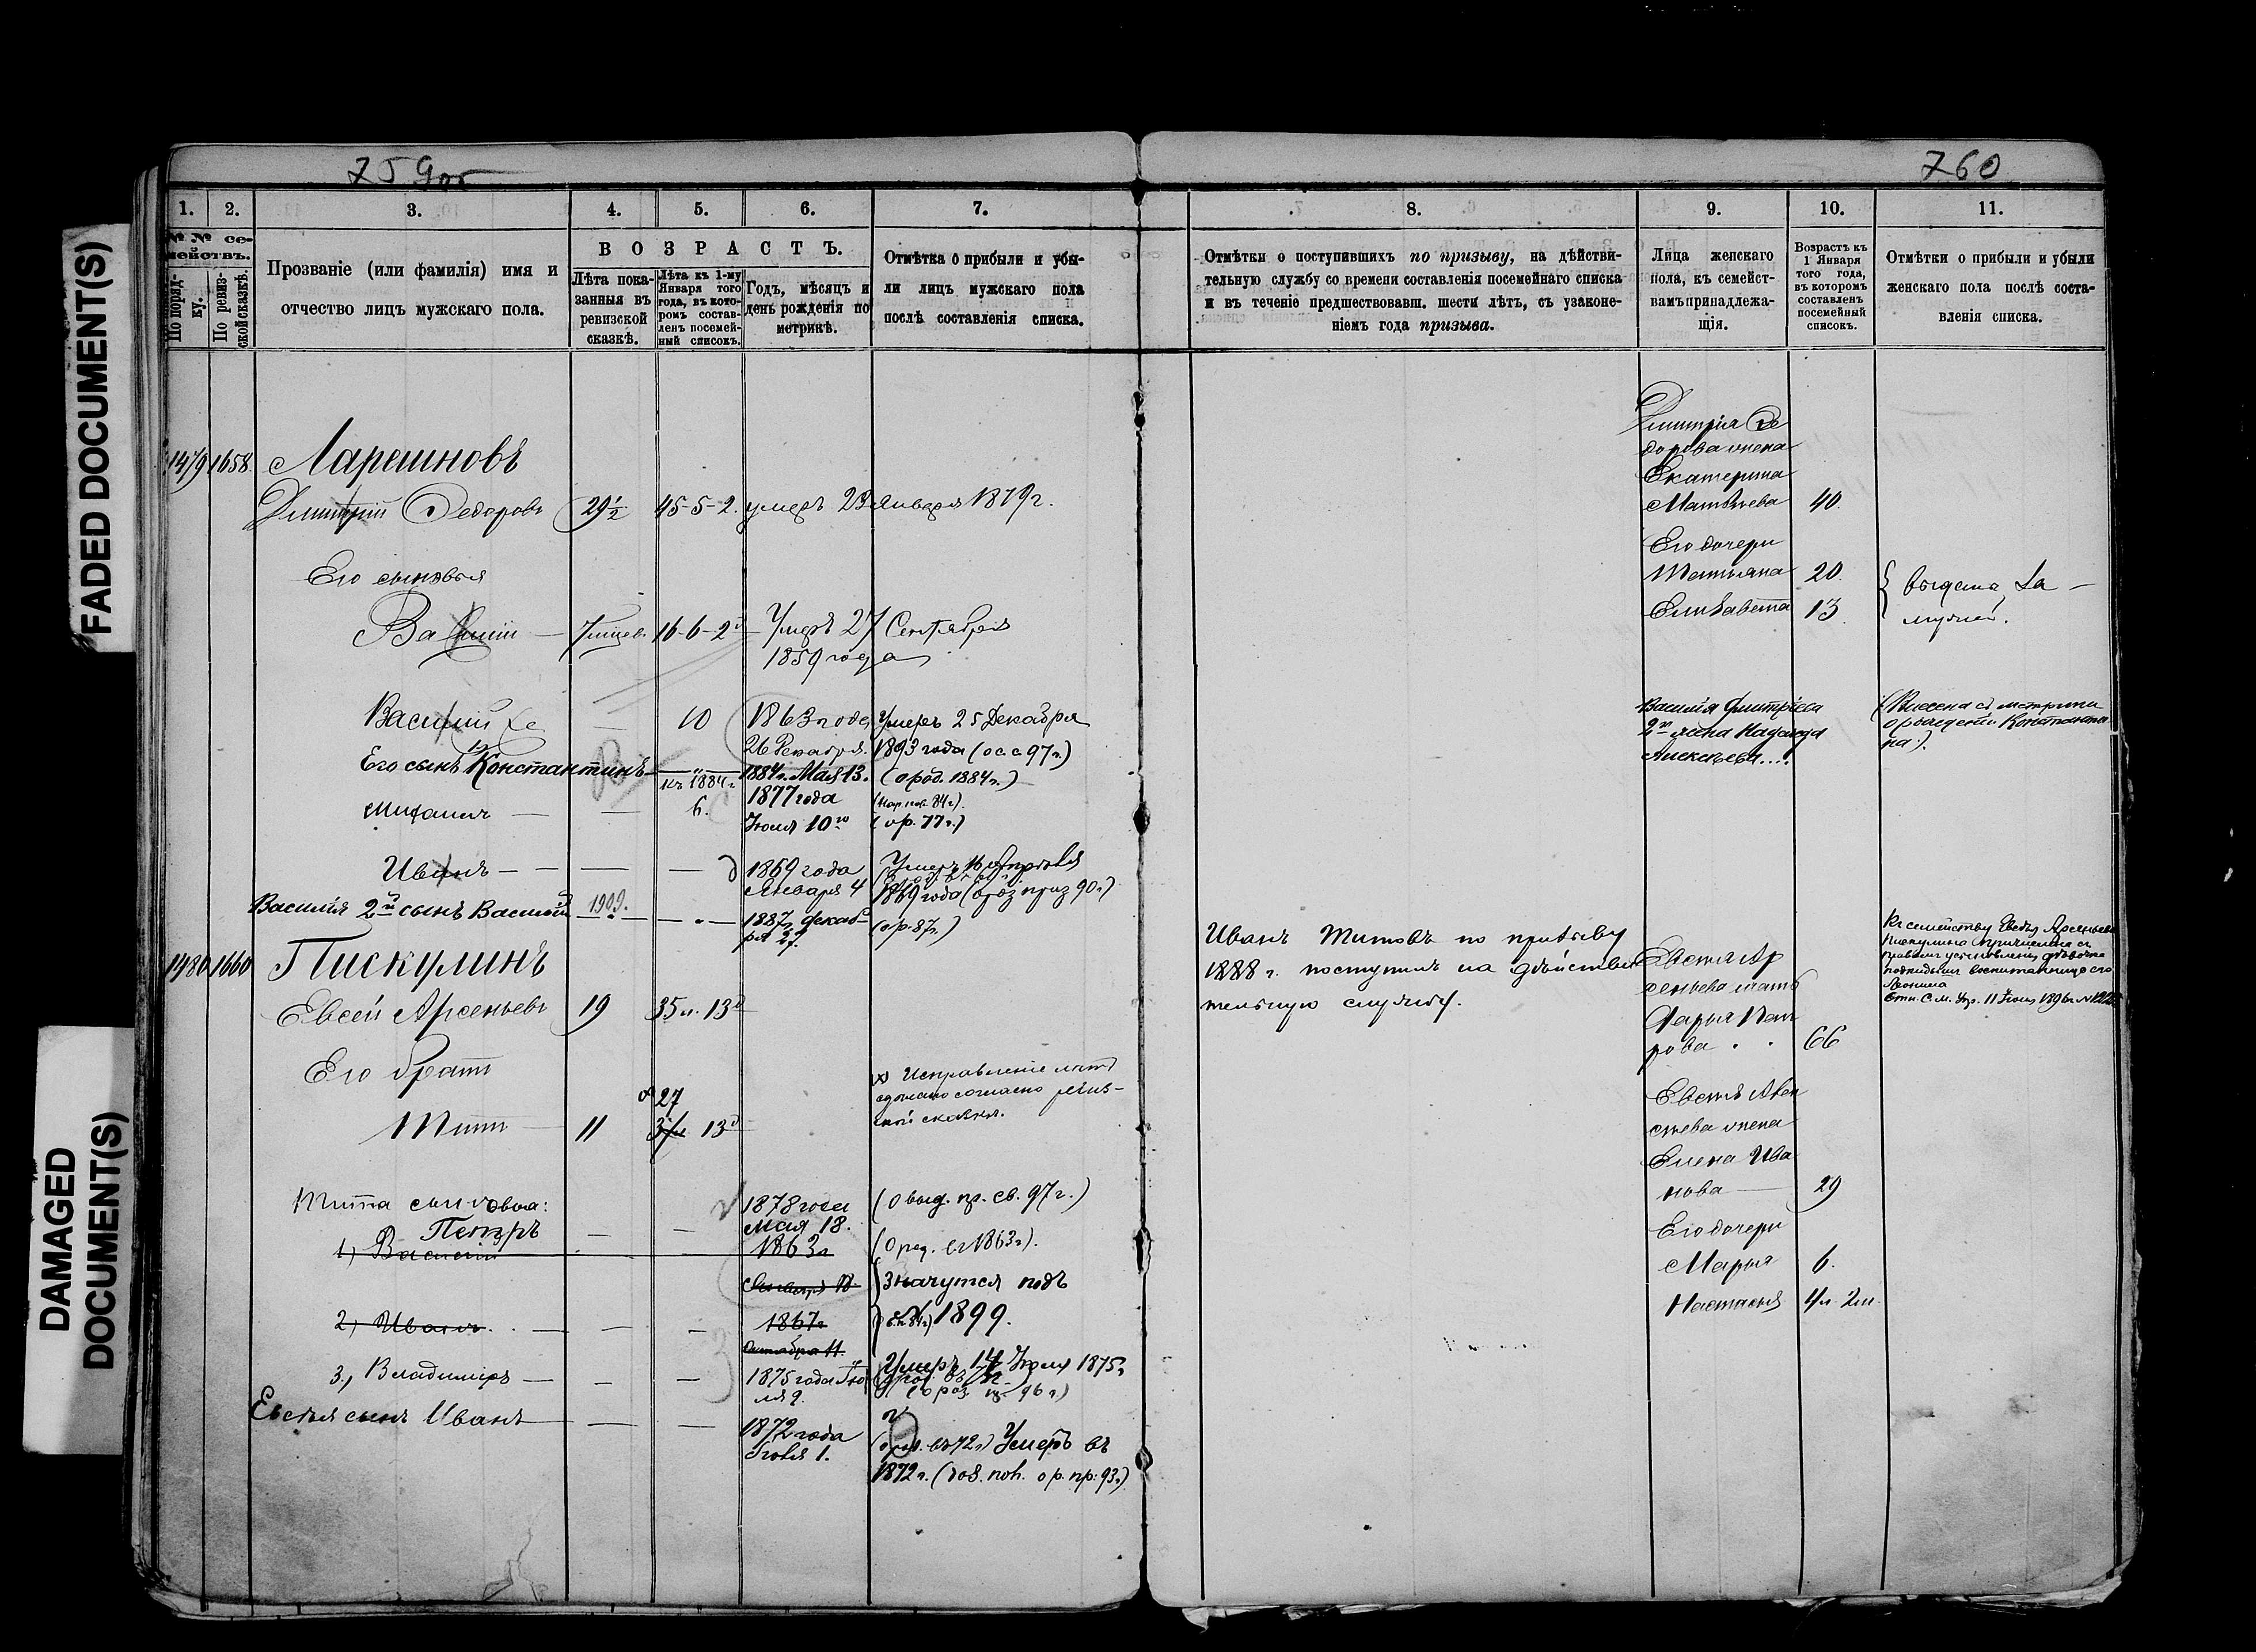 FADED DOCUMENT(S)
DAMAGED
DOCUMENT(S)
759об
1. 2. 3. 4. 5. 6. 7.
№№ се-
мействъ.
По поряд-
ку.
По ревиз-
ской сказкѣ.
Прозваніе (или фамилія) имя и
отчество лицъ мужскаго пола.
ВОЗРАСТЪ.
Лѣта пока-
занныя въ
ревизской
сказкѣ.
Лѣта къ 1-му
Января того
года, въ кото-
ромъ состав-
ленъ посемей-
ный списокъ.
Годъ, мѣсяцъ и
день рожденія по
метрикѣ.
Отмѣтка о прибыли и убы-
ли лицъ мужскаго пола
послѣ составленія списка.
1479 1658 Ларешновъ
Дмитрій Ѳедоровъ 29½ 45-5-2. умеръ 23 января 1879 г.
Его сыновья
Василій — 16-6-2 Умеръ 27 Сентября
1859 года
Василій — 10 1863 года Умеръ 25 Декабря
26 Декабря. 1893 года (ос. с 97 г.)
Его сынъ Константинъ — 1884 г. Мая 13. (о род. 1884 г.)
къ 1884 г.
Михаилъ — — 6. 1877 года
Іюля 10го (о р. 77 г.)
Иванъ — — — 1869 года Умеръ 16 Апрѣля
Января 4 1869 года (о роз приз 90 г.)
Василія 2й сынъ Василій 1909. — 1887 г. декаб- (о р. 87 г.)
ря 27.
1480 1660 Пискулинъ
Евсей Арсеньевъ 19 35 л. 13д
Его братъ
27 Исправленіе лѣтъ
сдѣлано согласно ревиз-
ной сказки.
Титъ — 11 13д
Тита сыновья: 1878 года (О выд. пр. св. 97 г.)
Петръ — — Мая 18.
1) Василій 1863 г. (О род. въ 1863 г.)
Января Значутся подъ
2) Иванъ — — 1867 г. № 1899.
Октября 11.
3) Владиміръ — — — 1875 года Ію- Умеръ 14 Іюля 1875 г.
ля 9. (о роз. пр. 96 г.)
Евсѣя сынъ Иванъ — — — 1872 года (о род. въ 72 г.) Умеръ въ
Іюля 1. 1872 г. (о р. пр. 93 г.)
760
8. 9. 10. 11.
Отмѣтки о поступившихъ по призыву, на дѣйстви-
тельную службу со времени составленія посемейнаго списка
и въ теченіе предшествовавш. шести лѣтъ, съ узаконе-
ніемъ года призыва.
Лица женскаго
пола, къ семейст-
вамъ принадлежа-
щія.
Возрастъ къ
1 Января
того года,
въ которомъ
составленъ
посемейный
списокъ.
Отмѣтки о прибыли и убыли
женскаго пола послѣ соста-
вленія списка.
Дмитрія Ѳе
дорова жена
Екатерина
Матвѣева 40.
Его дочери
Татьяна 20.
Елизавета 13
выдана за-
мужъ.
Василія Дмитріева
2го жена Надежда
Алексѣева...
(Внесена съ метрики
о рожденіи Константи
на).
Иванъ Титовъ по призыву
1888 г. поступилъ на дѣйстви
тельную службу.
Евсея Ар
сеньева мать
Дарья Пет
рова 66
Евсея Арсен
ьева жена
Елена Ива
нова — 29
Его дочери
Марья 6.
Настасья 4 л. 2 м.
Къ семейству Евсѣя Арсеньева
Пискулина причислена съ
подкидышъ воспитанница его
Отн. С. М. Упр. 11 Іюня 1896 г.